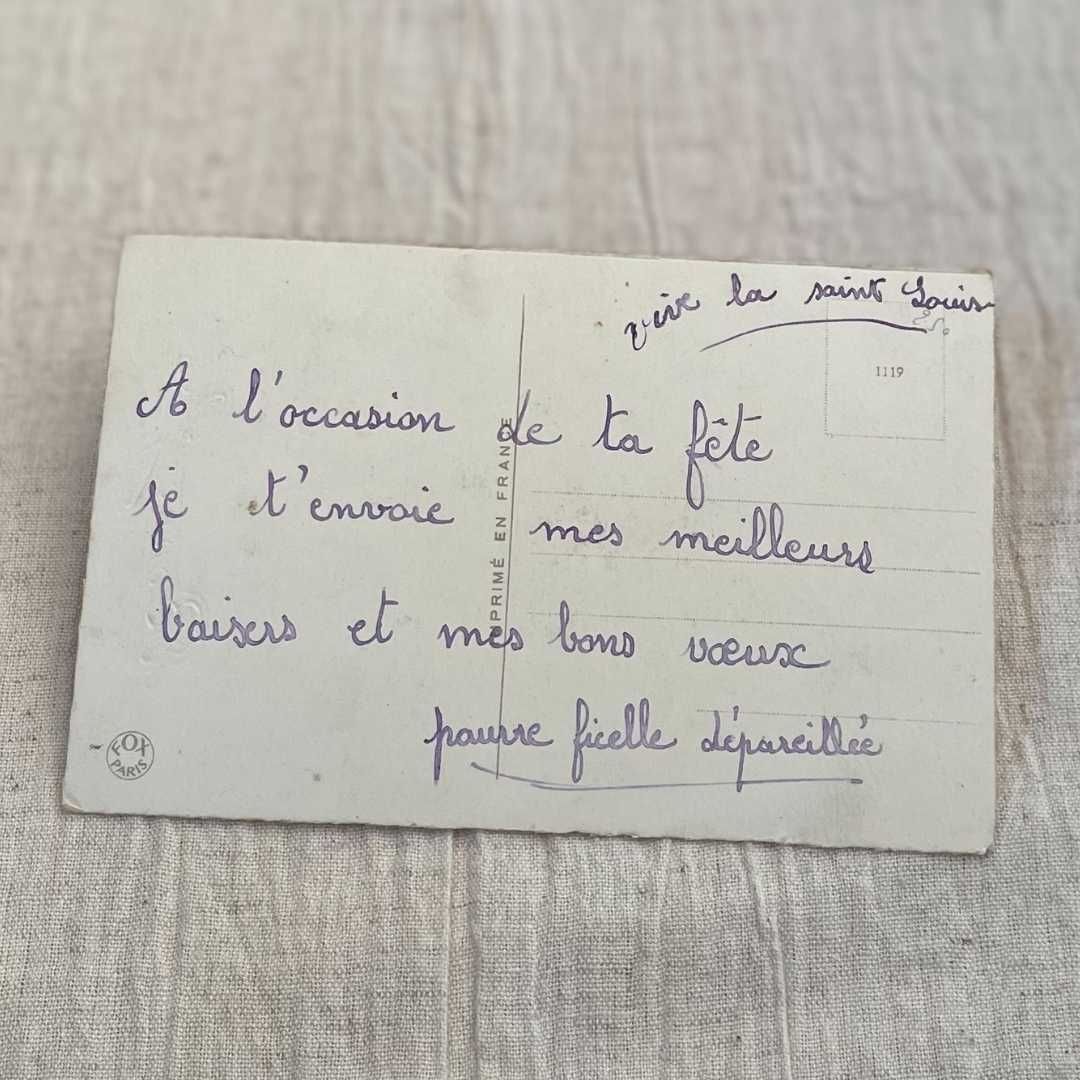 vive la saint Louis
1119
A l'occasion de ta fête
je t'envoie mes meilleurs
baisers et mes bons vœux
pauvre ficelle dépareillée
PRIMÉ EN FRANCE
FOX
PARIS